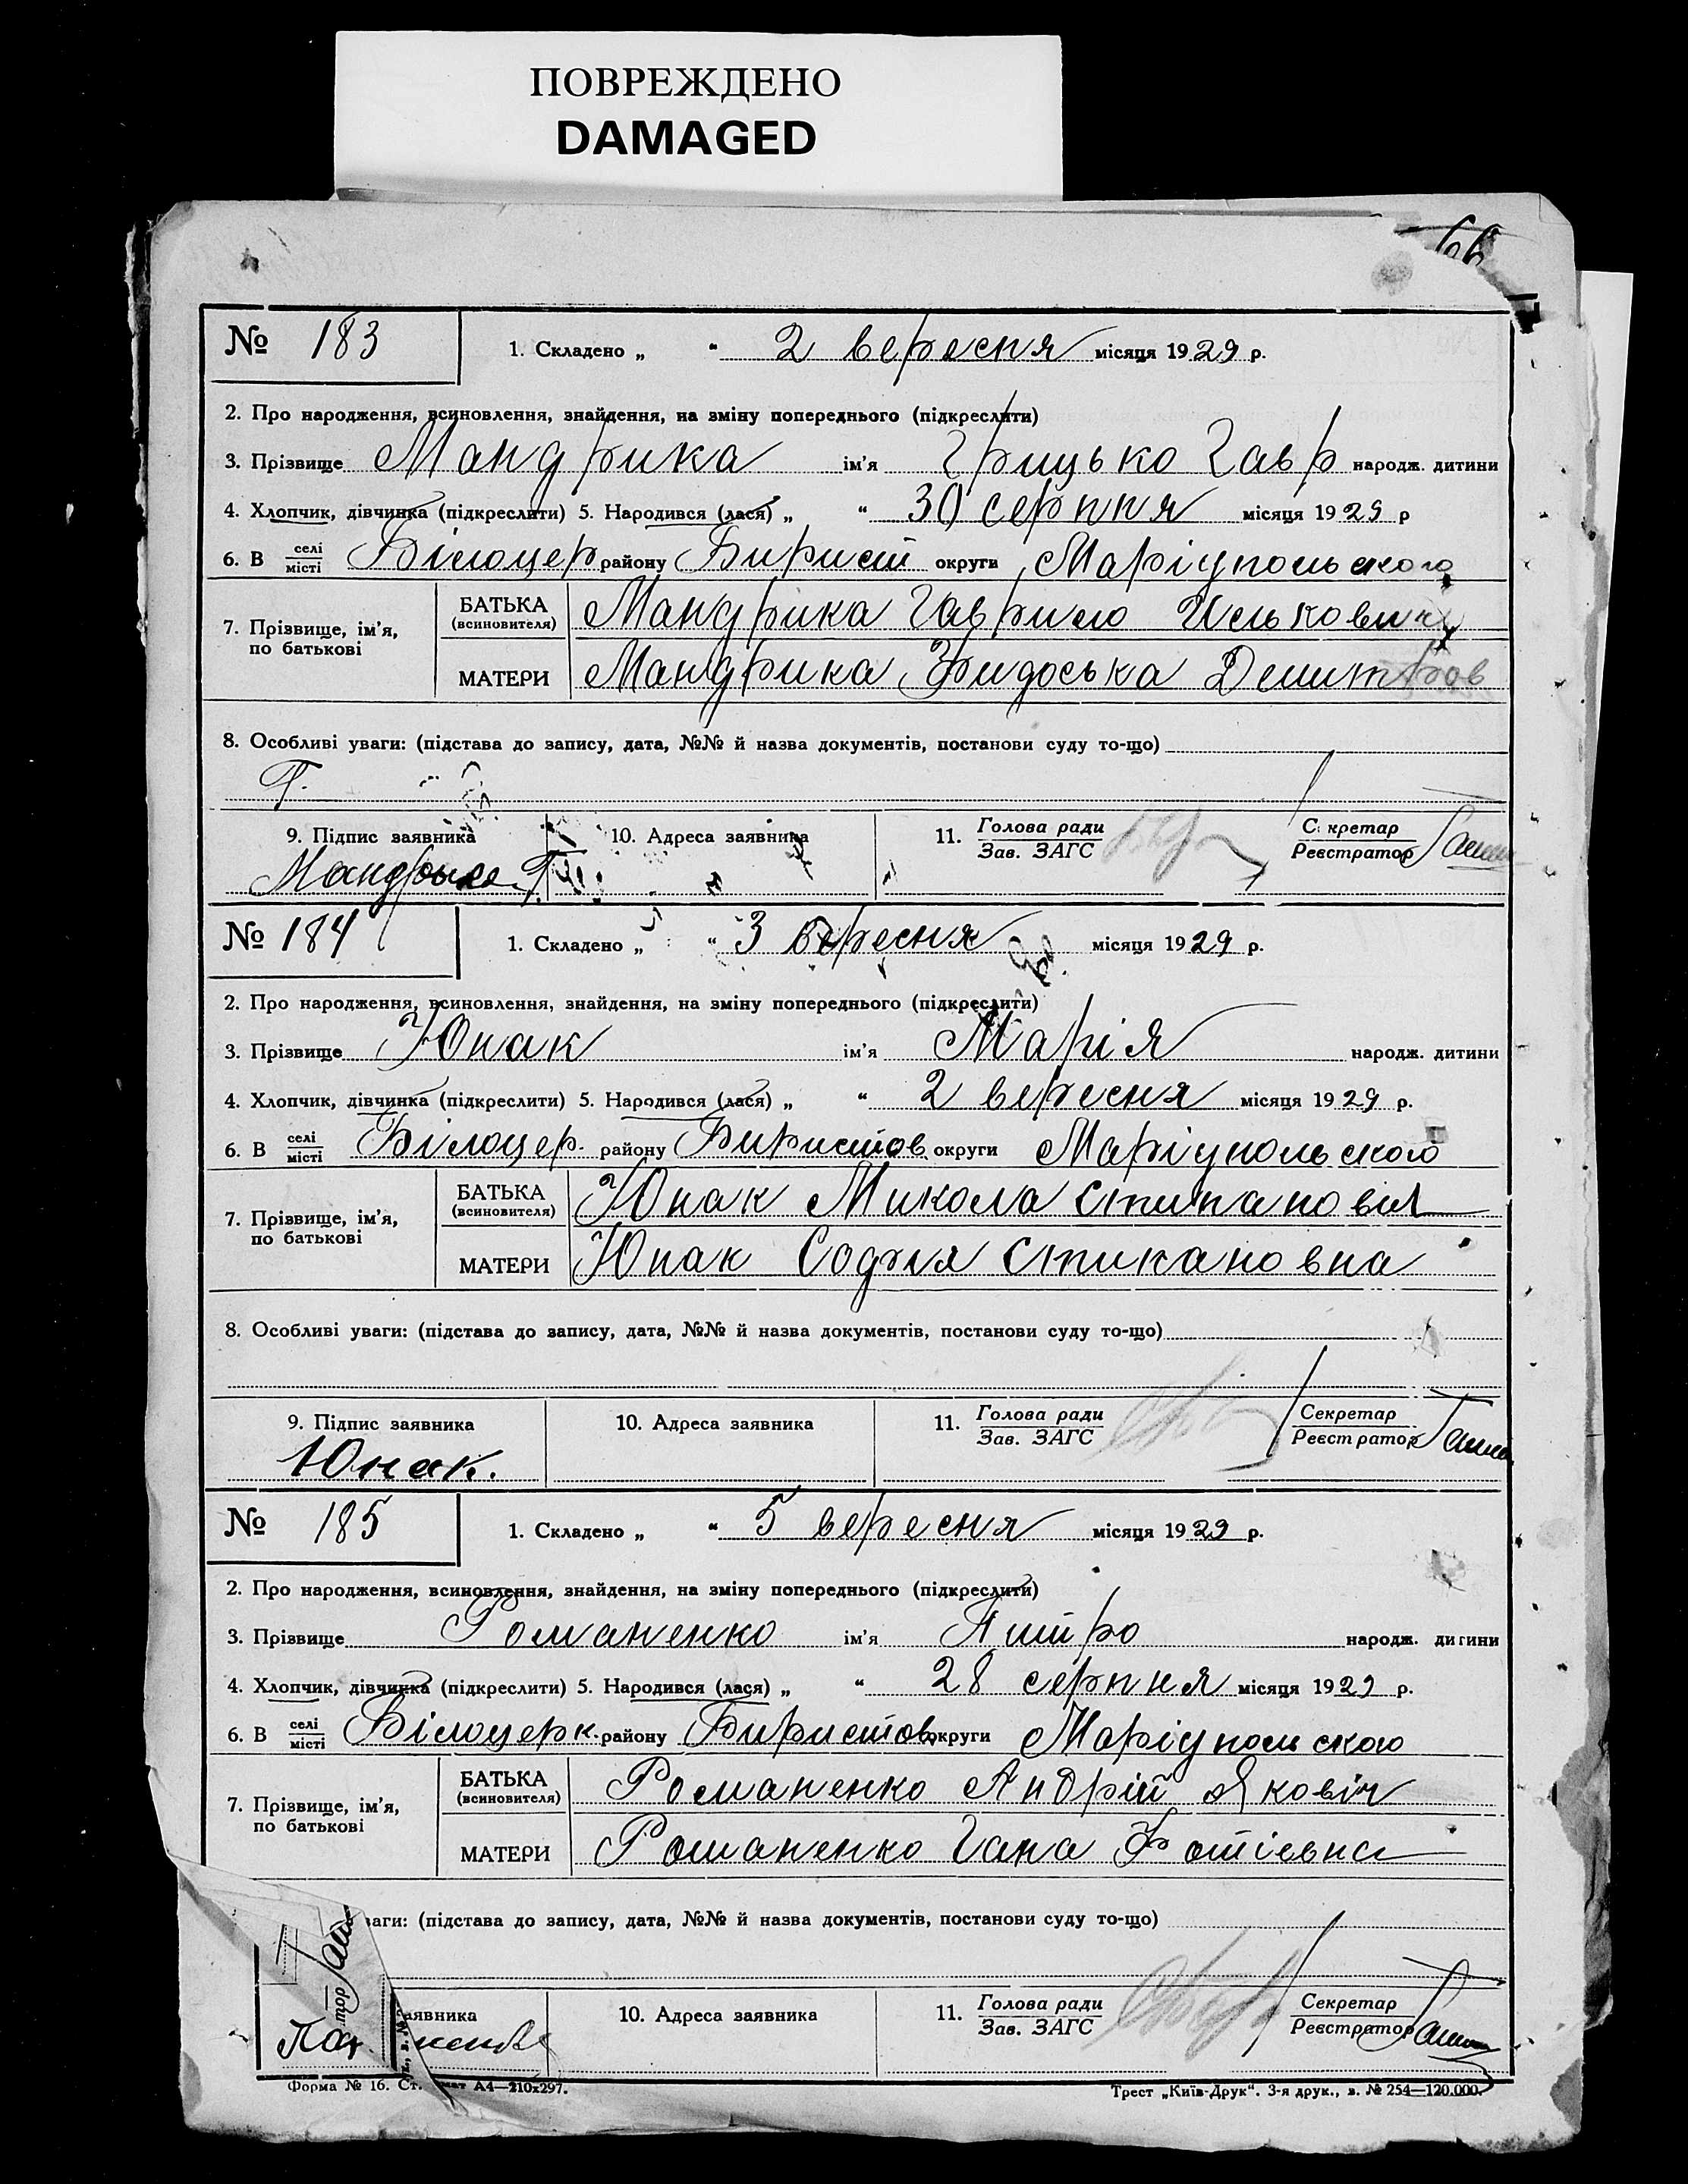 ПОВРЕЖДЕНО
DAMAGED
66
№ 183 1. Складено „ “ 2 вересня місяця 1929 р.
2. Про народження, всиновлення, знайдення, на зміну попереднього (підкреслити)
3. Прізвище Мандрика ім'я Грицько Гавр народж. дитини
4. Хлопчик, дівчинка (підкреслити) 5. Народився (лася) „ “ 30 серпня місяця 1929 р
6. В селі/місті Білоцер району Бирист округи Маріупольского
7. Прізвище, ім'я, по батькові БАТЬКА (всиновителя) Мандрика Гаврило Илькович
МАТЕРИ Мандрика Фидоська Дмитров
8. Особливі уваги: (підстава до запису, дата, №№ й назва документів, постанови суду то-що)
Г.
9. Підпис заявника 10. Адреса заявника 11. Голова ради/Зав. ЗАГС Секретар/Реєстратор
Мандрыка Г.
№ 184 1. Складено „ “ 3 вересня місяця 1929 р.
2. Про народження, всиновлення, знайдення, на зміну попереднього (підкреслити)
3. Прізвище Юнак ім'я Марія народж. дитини
4. Хлопчик, дівчинка (підкреслити) 5. Народився (лася) „ “ 2 вересня місяця 1929 р.
6. В селі/місті Білоцер. району Биристов. округи Маріупольского
7. Прізвище, ім'я, по батькові БАТЬКА (всиновителя) Юнак Микола Стипановіч
МАТЕРИ Юнак Софія Стипановна
8. Особливі уваги: (підстава до запису, дата, №№ й назва документів, постанови суду то-що)
9. Підпис заявника 10. Адреса заявника 11. Голова ради/Зав. ЗАГС Секретар/Реєстратор
Юнак.
№ 185 1. Складено „ “ 5 вересня місяця 1929 р.
2. Про народження, всиновлення, знайдення, на зміну попереднього (підкреслити)
3. Прізвище Романенко ім'я Питро народж. дитини
4. Хлопчик, дівчинка (підкреслити) 5. Народився (лася) „ “ 28 серпня місяця 1929 р.
6. В селі/місті Білоцерк. району Биристов. округи Маріупольского
7. Прізвище, ім'я, по батькові БАТЬКА (всиновителя) Романенко Андрій Яковіч
МАТЕРИ Романенко Гана Фотіевна
ваги: (підстава до запису, дата, №№ й назва документів, постанови суду то-що)
аявника 10. Адреса заявника 11. Голова ради/Зав. ЗАГС Секретар/Реєстратор
Форма № 16. Ст. мат А4—210х297. Трест „Київ-Друк“. 3-я друк., в. № 254—120.000.